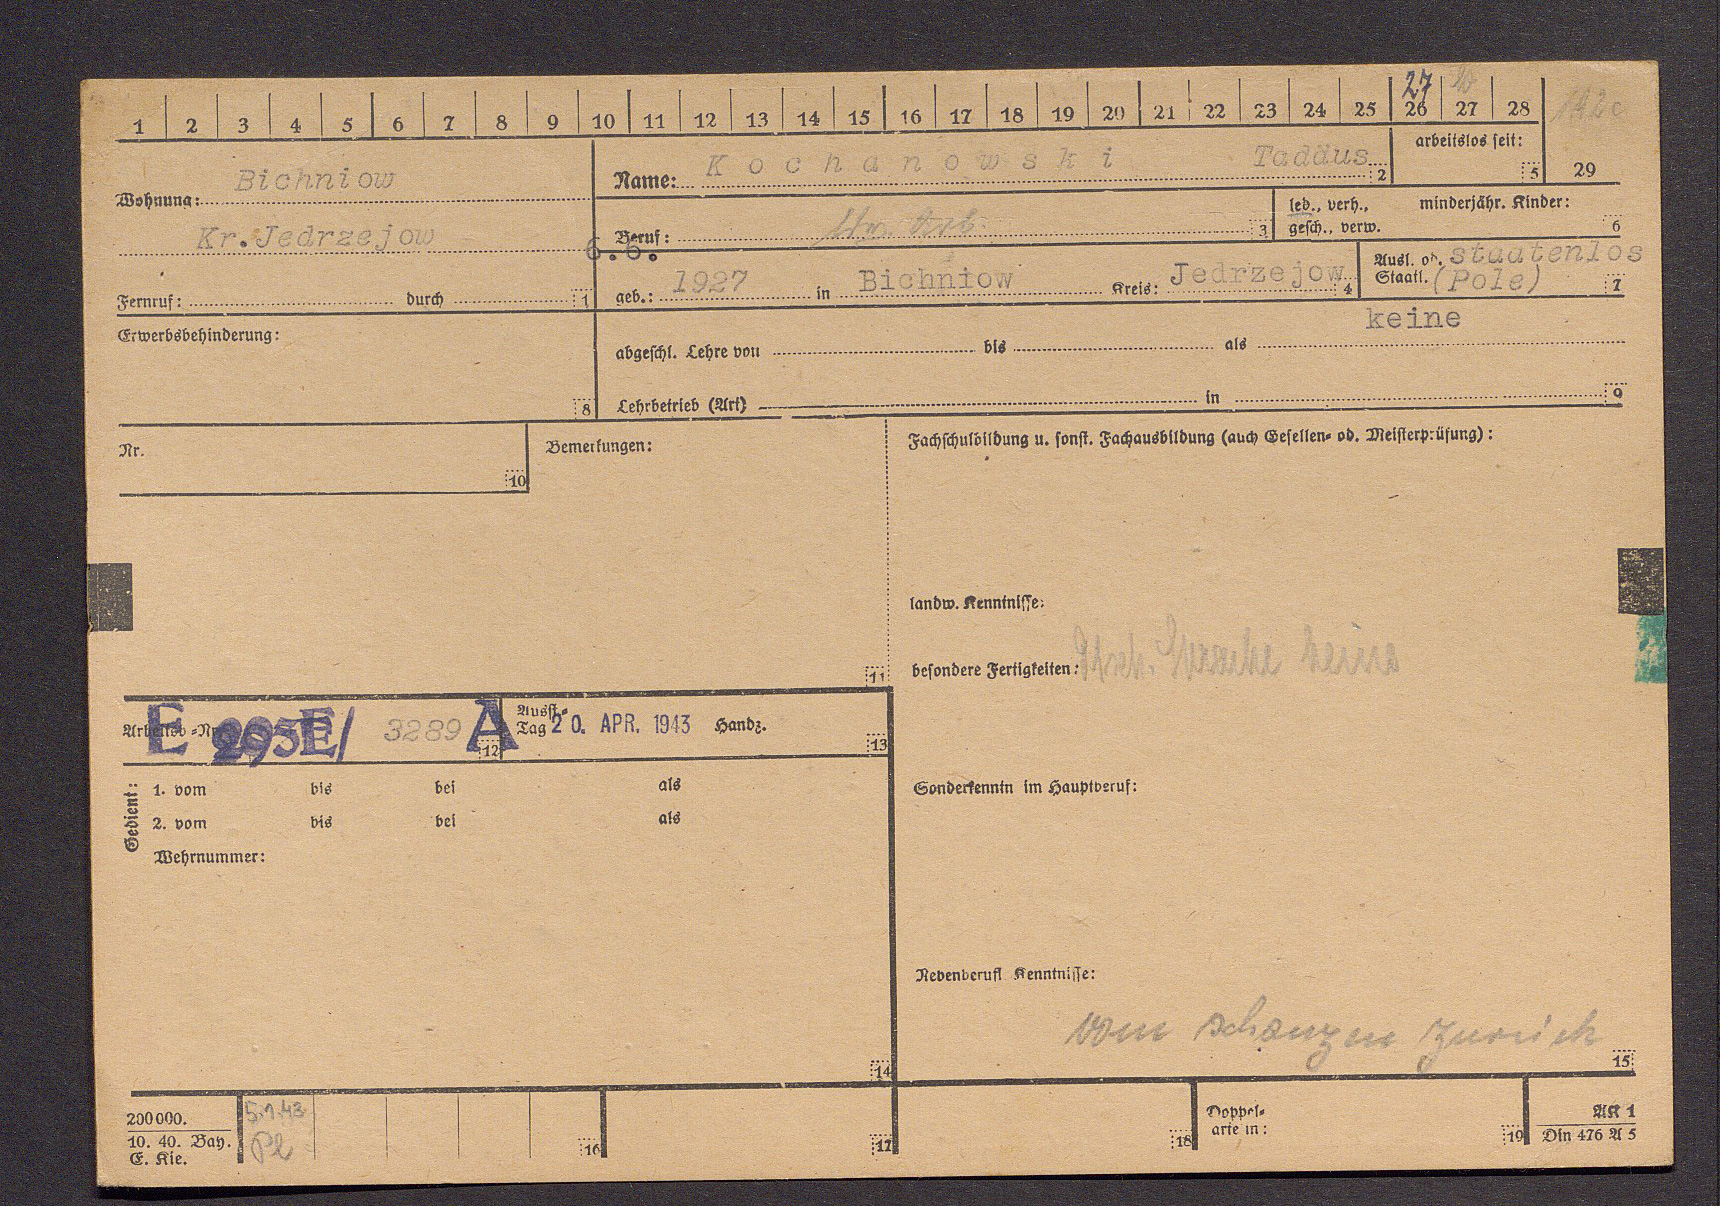 27
1 2 3 4 5 6 7 8 9 10 11 12 13 14 15 16 17 18 19 20 21 22 23 24 25 26 27 28
Wohnung: Bichniow
Kr. Jedrzejow
Fernruf: durch 1
Name: Kochanowski Taddäus 2
arbeitslos seit: 5
29
Beruf: 3
led., verh., minderjähr. Kinder:
gesch., verw. 6
6.6.
geb.: 1927 in Bichniow Kreis: Jedrzejow 4
Ausl. od. staatenlos
Staatl. (Pole) 7
Erwerbsbehinderung:
8
keine
abgeschl. Lehre von bis als
Lehrbetrieb (Art) in 9
Nr.
10
Bemerkungen:
11
Fachschulbildung u. sonst. Fachausbildung (auch Gesellen- od. Meisterprüfung):
landw. Kenntnisse:
besondere Fertigkeiten:
Arbeitsb.-Nr. E 295E/ 3289 A 12
Ausst.-
Tag 20. APR. 1943 Handz. 13
Gedient:
1. vom bis bei als
2. vom bis bei als
Wehrnummer:
14
Sonderkenntn im Hauptberuf:
Nebenberufl Kenntnisse:
vom schanzen zurück
15
200000.
10. 40. Bay.
E. Kie.
5.1.43
Pl
16
17
18
Doppel-
arte in:
19
AK 1
Din 476 A 5